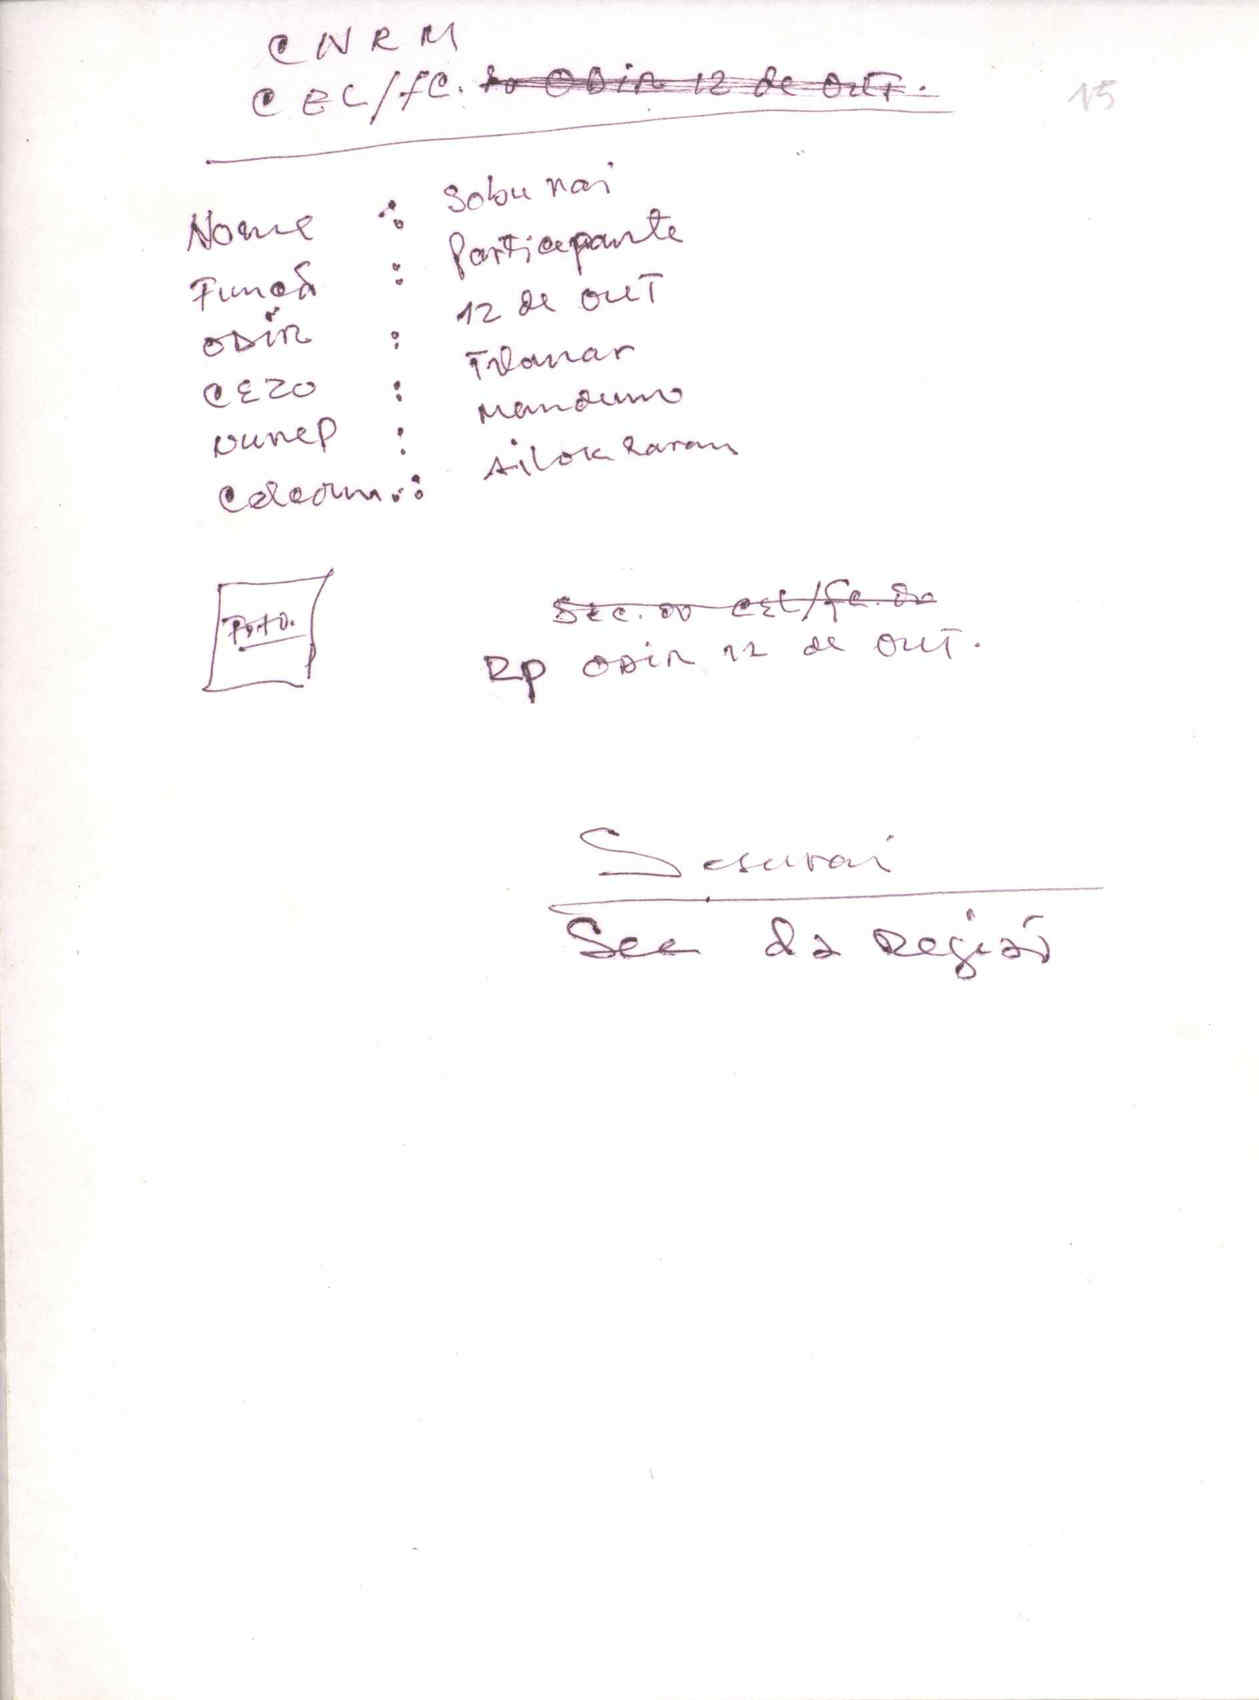 CNRM
CEL/FC. do ODIR 12 de OUT.
15
Nome : Sobu nai
Funçã : Participante
ODIR : 12 de OUT
CEZO :
NUREP : Manduno
Celcom. : Ailok Laran
Foto.
Sec. do CEL/FC. do
Rp ODIR 12 de OUT.
Sesurai
Sec da Região